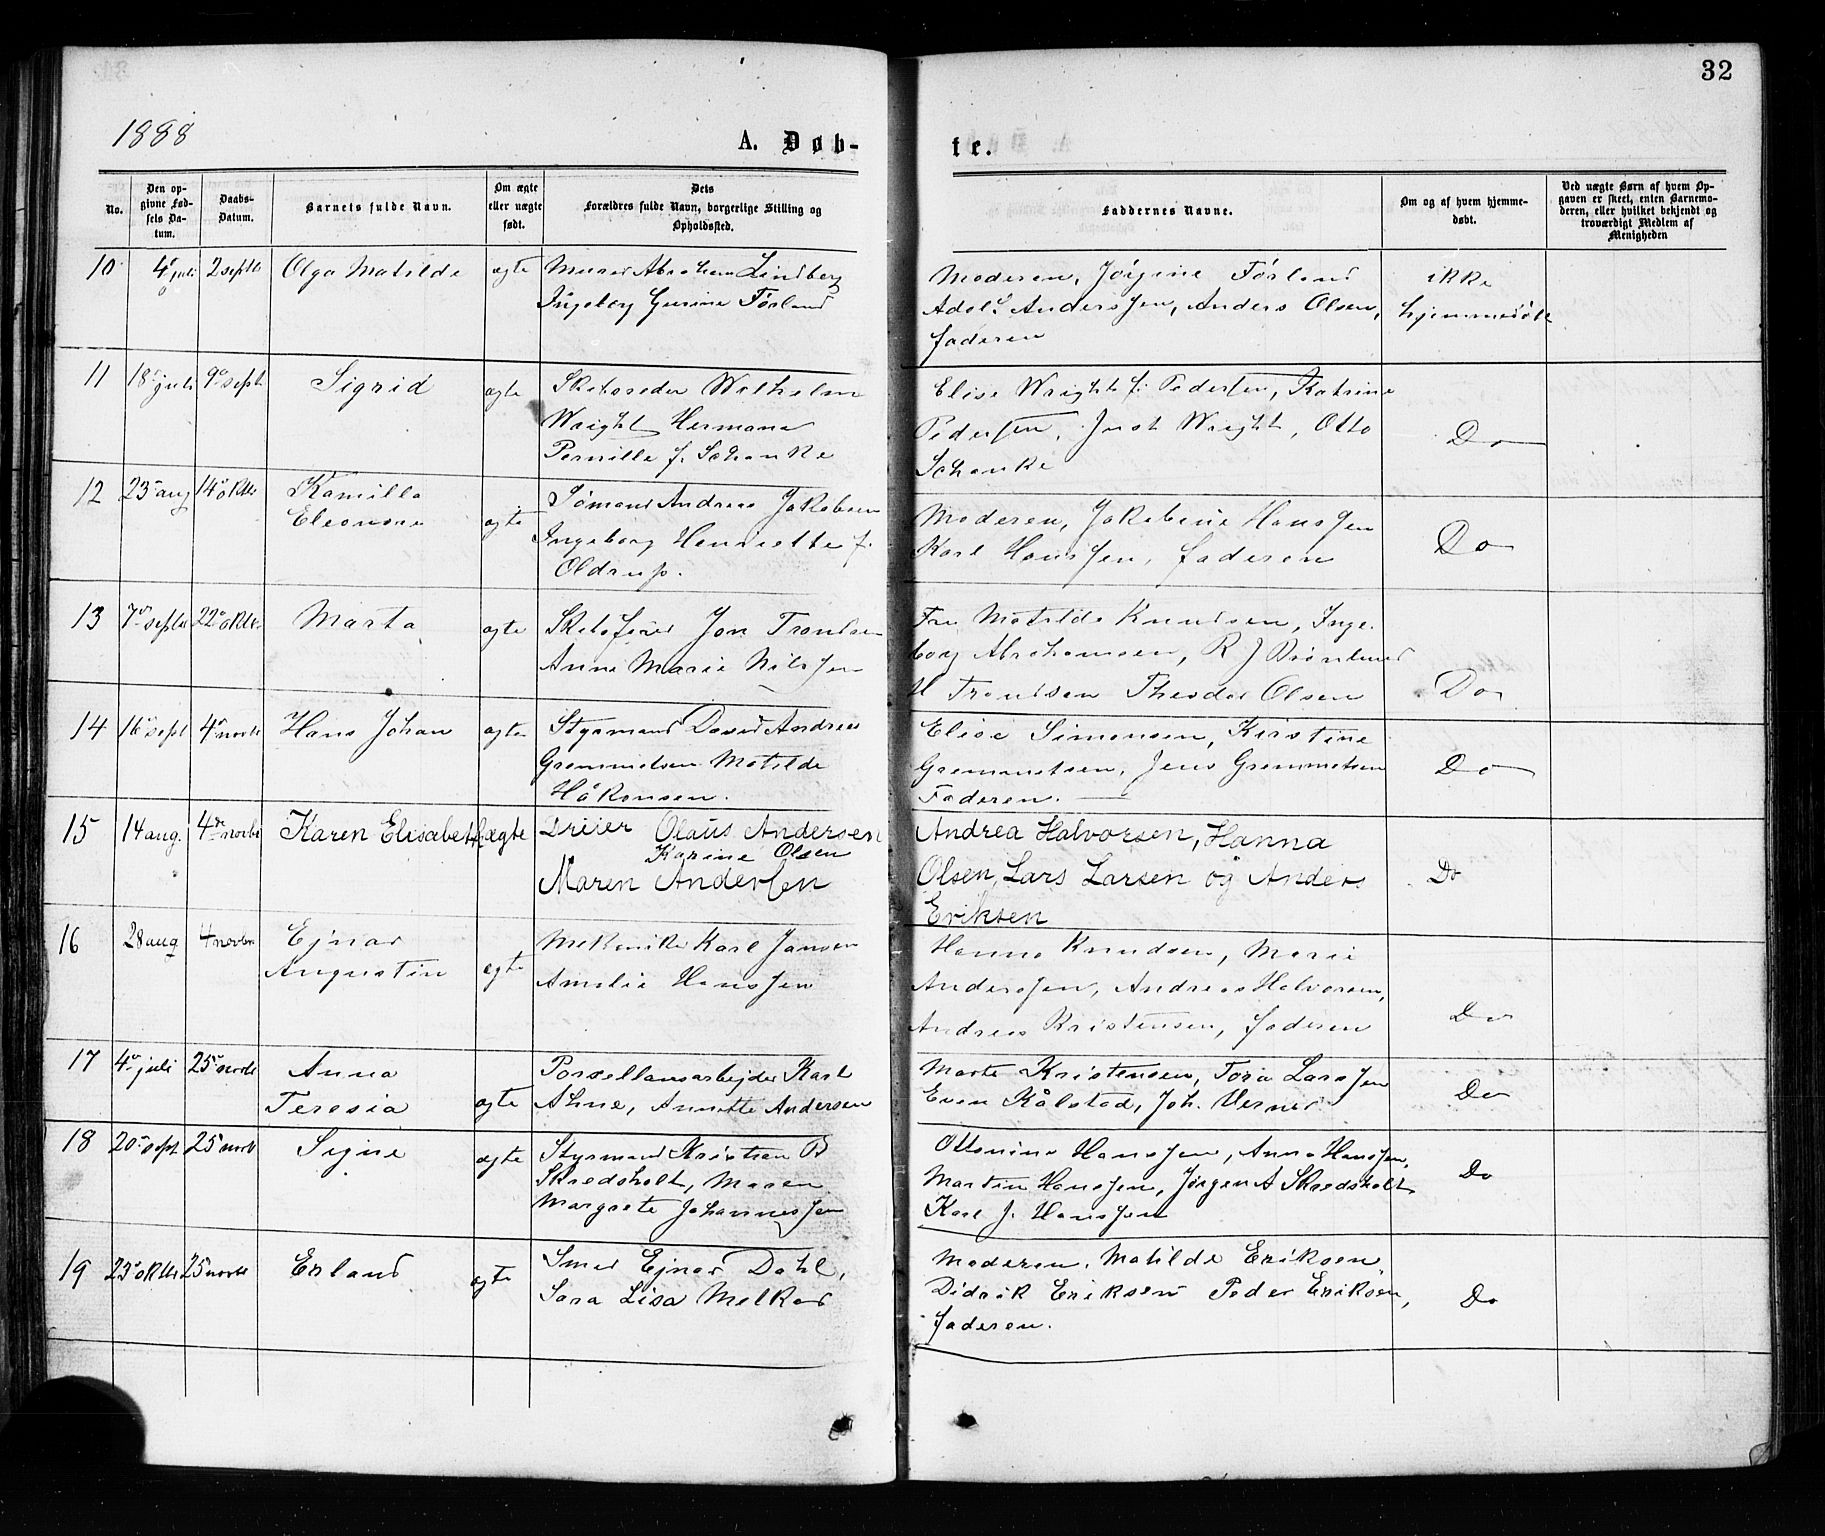 32
1888
A. Døb-
te.
No.
Den op-
givne Fød-
sels Da-
tum.
Daabs-
Datum.
Barnets fulde Navn.
Om ægte
eller uægte
født.
Dets
Forældres fulde Navn, borgerlige Stilling og
Opholdssted.
Faddernes Navne.
Om og af hvem hjemme-
døbt.
Ved uægte Børn af hvem Op-
gaven er skeet, enten Barnemo-
deren, eller hvilket bekjendt og
troværdigt Medlem af
Menigheden
10 4 juli 2 septb Olga Matilde ægte Murer Abraham Lindberg
Ingeborg Gurine Førland
Moderen, Jørgine Førland
Adolf Anderssen, Anders Olsen,
faderen
ikke
hjemmedøbt
11 18 juli 9 sept Sigrid ægte Skibsreder Wilhelm
Wright Hermana
Pernille f. Schanke
Elise Wright f. Pedersen, Katrine
Pedersen, Just Wright, Otto
Schanke
Do
12 23 aug 14 oktb Kamilla
Eleonore
ægte Sømand Andreas Jakobsen
Ingeborg Henriette f.
Oldrup.
Moderen, Jakobine Hanssen
Karl Hanssen, faderen
Do
13 7 septb 22 oktb. Marta ægte Skibsfører Jon Trondsen
Anne Marie Nilssen
Fru Matilde Knudsen, Inge-
borg Abrahamsen, R J
H Trondsen Theodor Olsen
Do
14 16 sept 4 novb Hans Johan ægte Styrmand David Andreas
Gremmetsen Matilde
Håkonsen.
Elise Simonsen, Kirstine
Gremmetsen, Jens Gremmetsen
Faderen.
Do
15 14 aug. 4de novbr Karen Elisabeth ægte Dreier Olaus Andersen
Karine Olsen
Maren Andersen
Andrea Halvorsen, Hanna
Olsen, Lars Larsen og Anders
Eriksen
Do
16 28 aug 4 novbr Ejnar
Augustin
ægte Mekaniker Karl Jansen
Amalie Hanssen
Hanna Knudsen, Marie
Anderssen, Andreas Halvorsen,
Andreas Kristensen, faderen
Do
17 4 juli 25 novb Anna
Teresia
ægte Porsellansarbejder Karl
Ahne, Annette Andersen
Marte Kristensen, Tora Larssen
Even Kålstad, Joh. Verner
Do
18 20 sept 25 novb Signe ægte Styrmand Kristian B
Skredsholt, Maren
Margrete Johannessen
Ottomine Hanssen, Anna Hanssen,
Martin Hanssen, Jørgen A Skredsholt
Karl J. Hanssen
Do
19 23 oktb 25 novb Erland ægte Smed Ejnar Dahl,
Sara Lisa Melker
Moderen, Matilde Eriksen,
Didrik Eriksen Peder Eriksen,
faderen.
Do